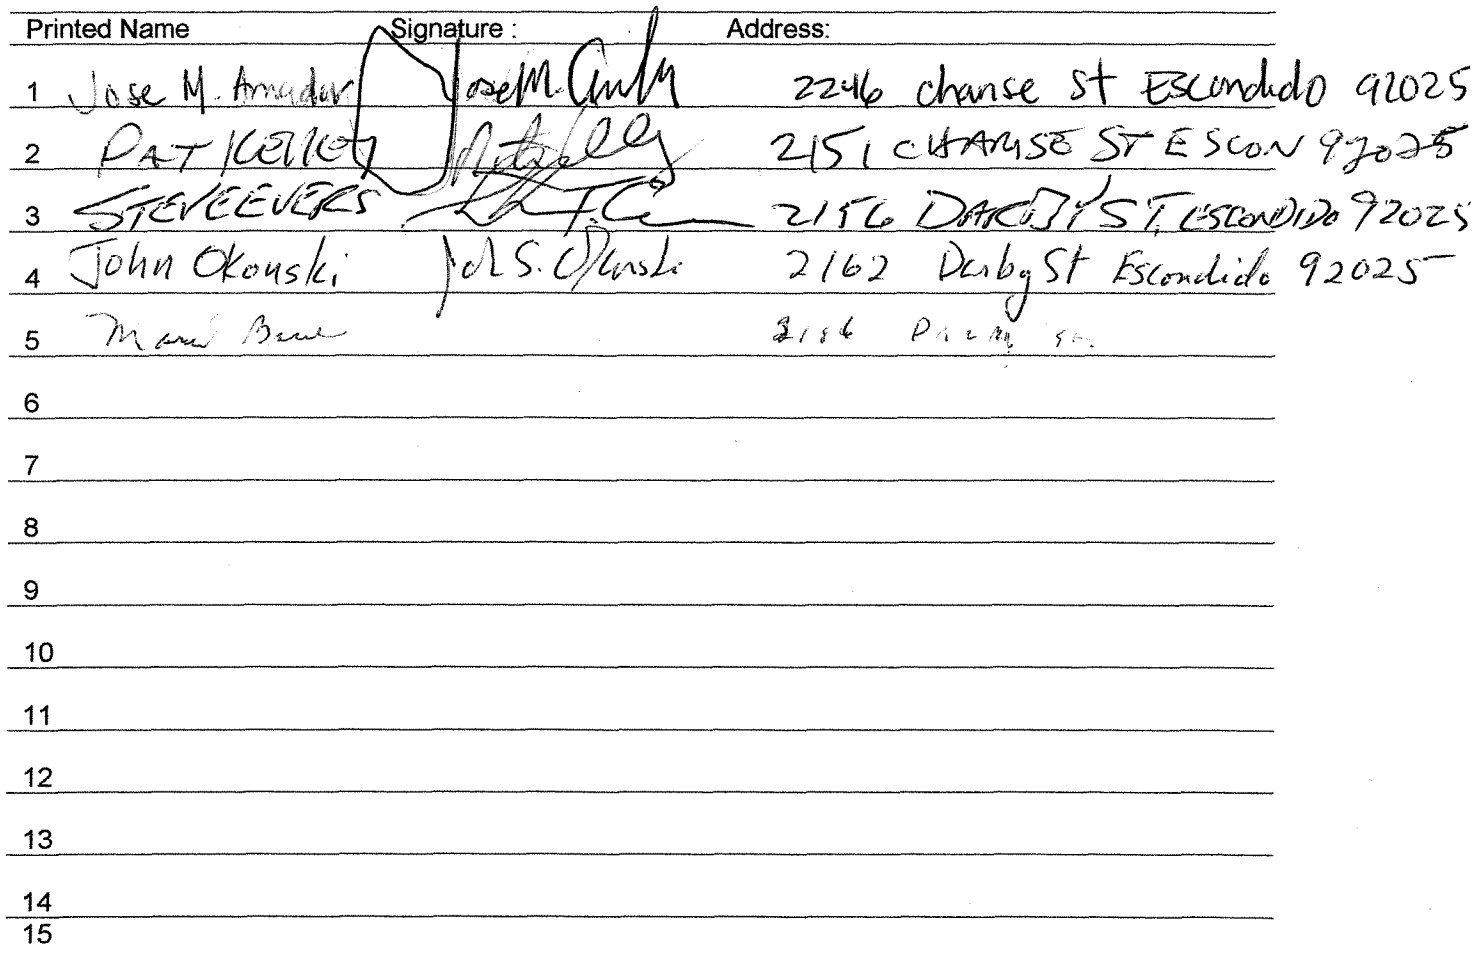 Printed Name Signature : Address:
1 Jose M. Amador Jose M. 2246 chanse St Escondido 92025
2 PAT KELLEY 2151 CHANSE ST ESCON 92025
3 STEVE EVERS 2156 DARBY ST, ESCONDIDO 92025
4 John Okonski John S. Okonski 2162 Darby St Escondido 92025
5
6
7
8
9
10
11
12
13
14
15